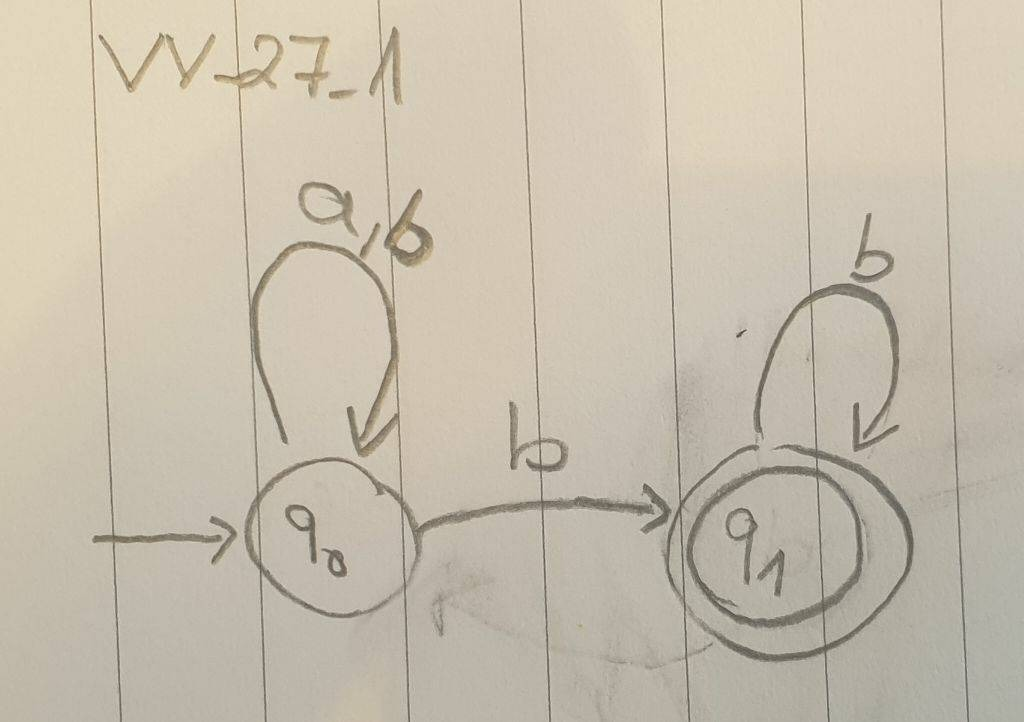 VV-27-1
a,b
b
b
q0
q1